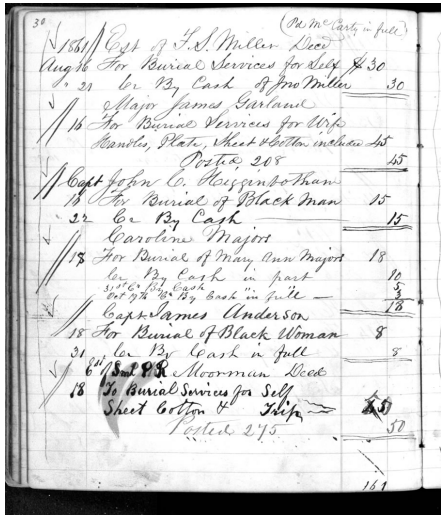 30
(Pd McCarty in full)
1861 Est of F.S. Miller Decd
Aug 16 For Burial Services for Self $ 30
" 21 Cr By Cash of Jno Miller 30
Major James Garland
16 For Burial Services for Wife
Handles, Plate, Sheet & Cotton included 45
Posted 208 45
Capt John C. Higginbotham
16 For Burial of Black Man 15
22 Cr By Cash 15
Caroline Majors
18 For Burial of Mary Ann Majors 18
Cr By Cash in part 10
31st Cr By Cash 5
Oct 17th Cr By Cash in full 3
18
Capt. James Anderson
18 For Burial of Black Woman 8
31 Cr By Cash in full 8
Moorman Decd
18 To Burial Services for Self
Sheet Cotton & Trip
50
Posted 275
161